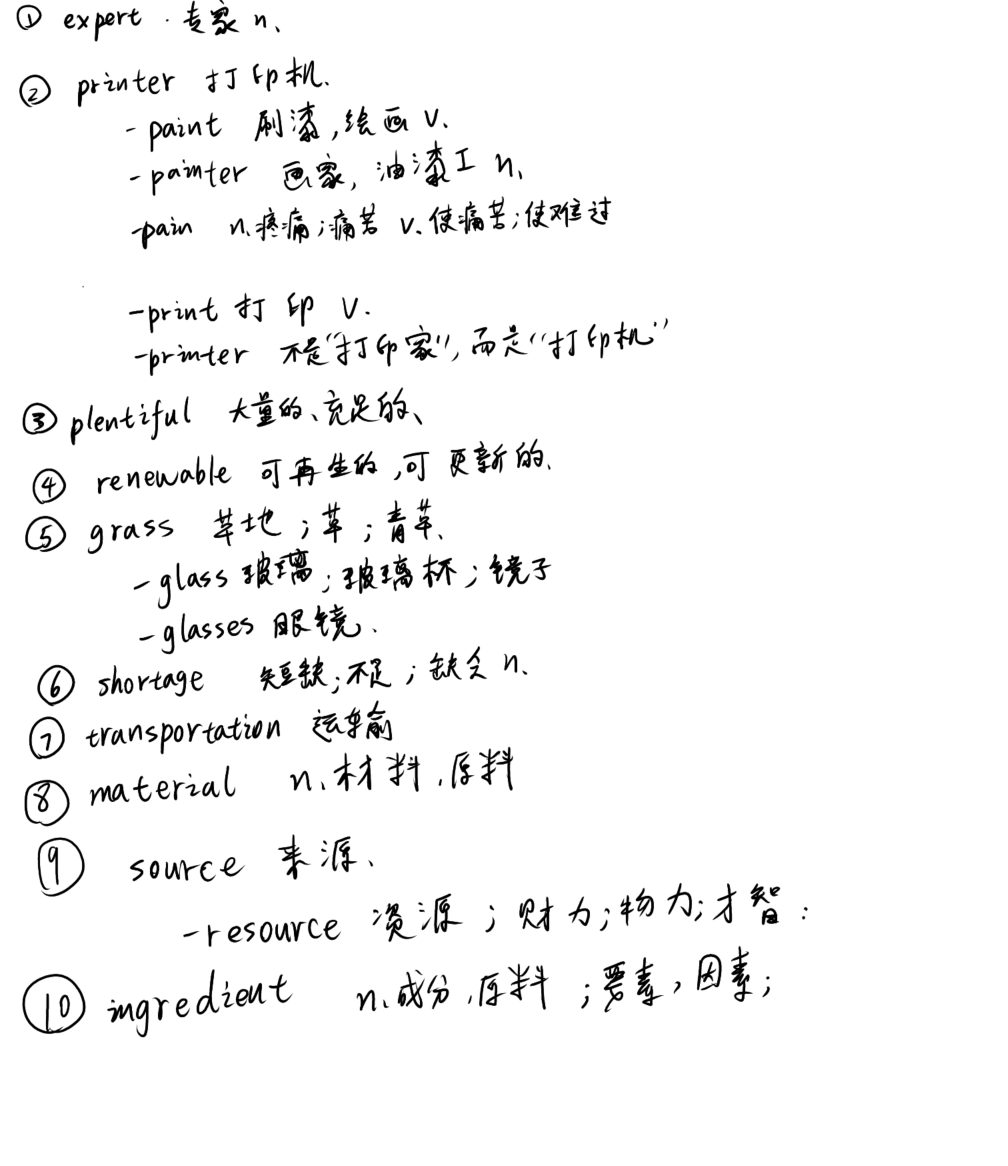 ① expert. 专家 n、
② printer 打印机.
-paint 刷漆,绘画 v.
-painter 画家, 油漆工 n、
-pain n、疼痛;痛苦 v、使痛苦;使难过
-print 打印 v.
-printer 不是"打印家",而是"打印机"
③ plentiful 大量的、充足的、
④ renewable 可再生的,可更新的、
⑤ grass 草地;草;青草、
-glass 玻璃;玻璃杯;镜子
-glasses 眼镜.
⑥ shortage 短缺;不足;缺乏 n、
⑦ transportation 运输
⑧ material n、材料、原料
⑨ source 来源、
-resource 资源;财力;物力;才智:
⑩ ingredient n、成分、原料;要素,因素;